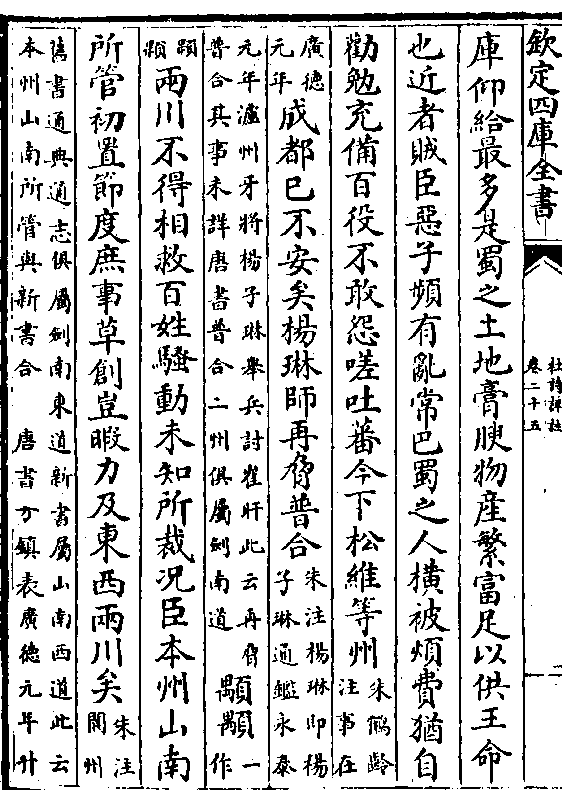 欽定四庫全書
杜詩詳註
卷二十五
庫仰給最多是蜀之土地膏腴物産繁富足以供王命
也近者賊臣惡子頻有亂常巴蜀之人橫被煩費猶自
勸勉充備百役不敢怨嗟吐蕃今下松維等州朱鶴齡
注事在
廣德
元年成都已不安矣楊琳師再脅普合朱注楊琳即楊
子琳通鑑永泰
元年瀘州牙將楊子琳舉兵討崔旰此云再脅
普合其事未詳唐書普合二州俱屬劍南道顒顒一
作
兩川不得相救百姓騷動未知所裁況臣本州山南
所管初置節度庶事草創豈暇力及東西兩川矣朱注
閬州
舊書通典通志俱屬劍南東道新書屬山南西道此云
本州山南所管與新書合　唐書方鎮表廣德元年升